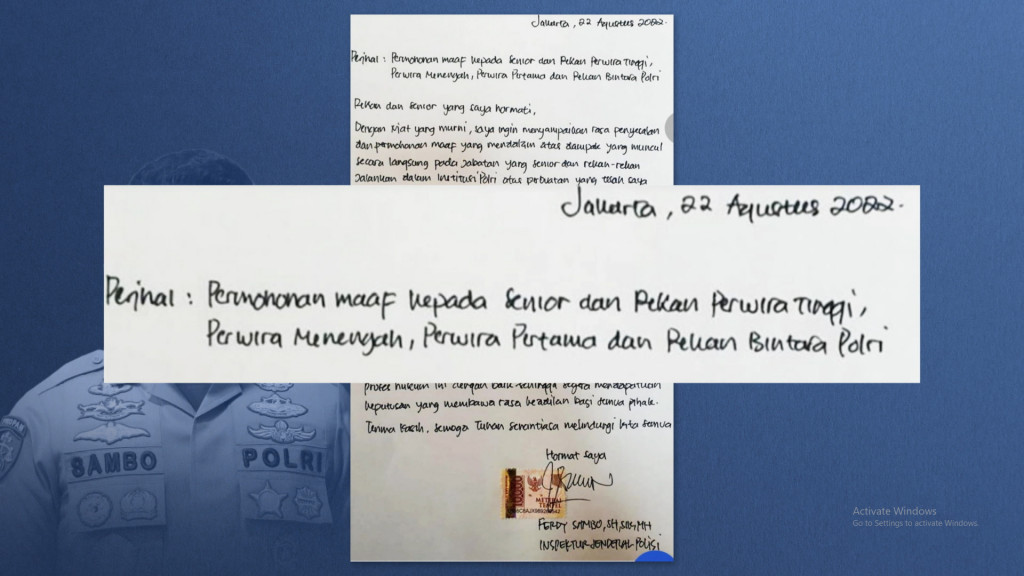 Jakarta, 22 Agustus 2022.
Perihal : Permohonan maaf kepada Senior dan Rekan Perwira Tinggi,
Perwira Menengah, Perwira Pertama dan Rekan Bintara Polri
Rekan dan Senior yang saya hormati,
Dengan niat yang murni, saya ingin menyampaikan rasa penyesalan
dan permohonan maaf yang mendalam atas dampak yang muncul
secara langsung pada jabatan yang senior dan rekan-rekan
jalankan dalam institusi Polri atas perbuatan yang telah saya
Jakarta, 22 Agustus 2022.
Perihal : Permohonan maaf kepada Senior dan Rekan Perwira Tinggi,
Perwira Menengah, Perwira Pertama dan Rekan Bintara Polri
proses hukum ini dengan baik sehingga segera mendapatkan
keputusan yang membawa rasa keadilan bagi semua pihak.
Terima kasih, semoga Tuhan senantiasa melindungi kita semua
Hormat saya
10000
METERAI
TEMPEL
FERDY SAMBO, SH, SIK, MH
INSPEKTUR JENDERAL POLISI
SAMBO
POLRI
Activate Windows
Go to Settings to activate Windows.